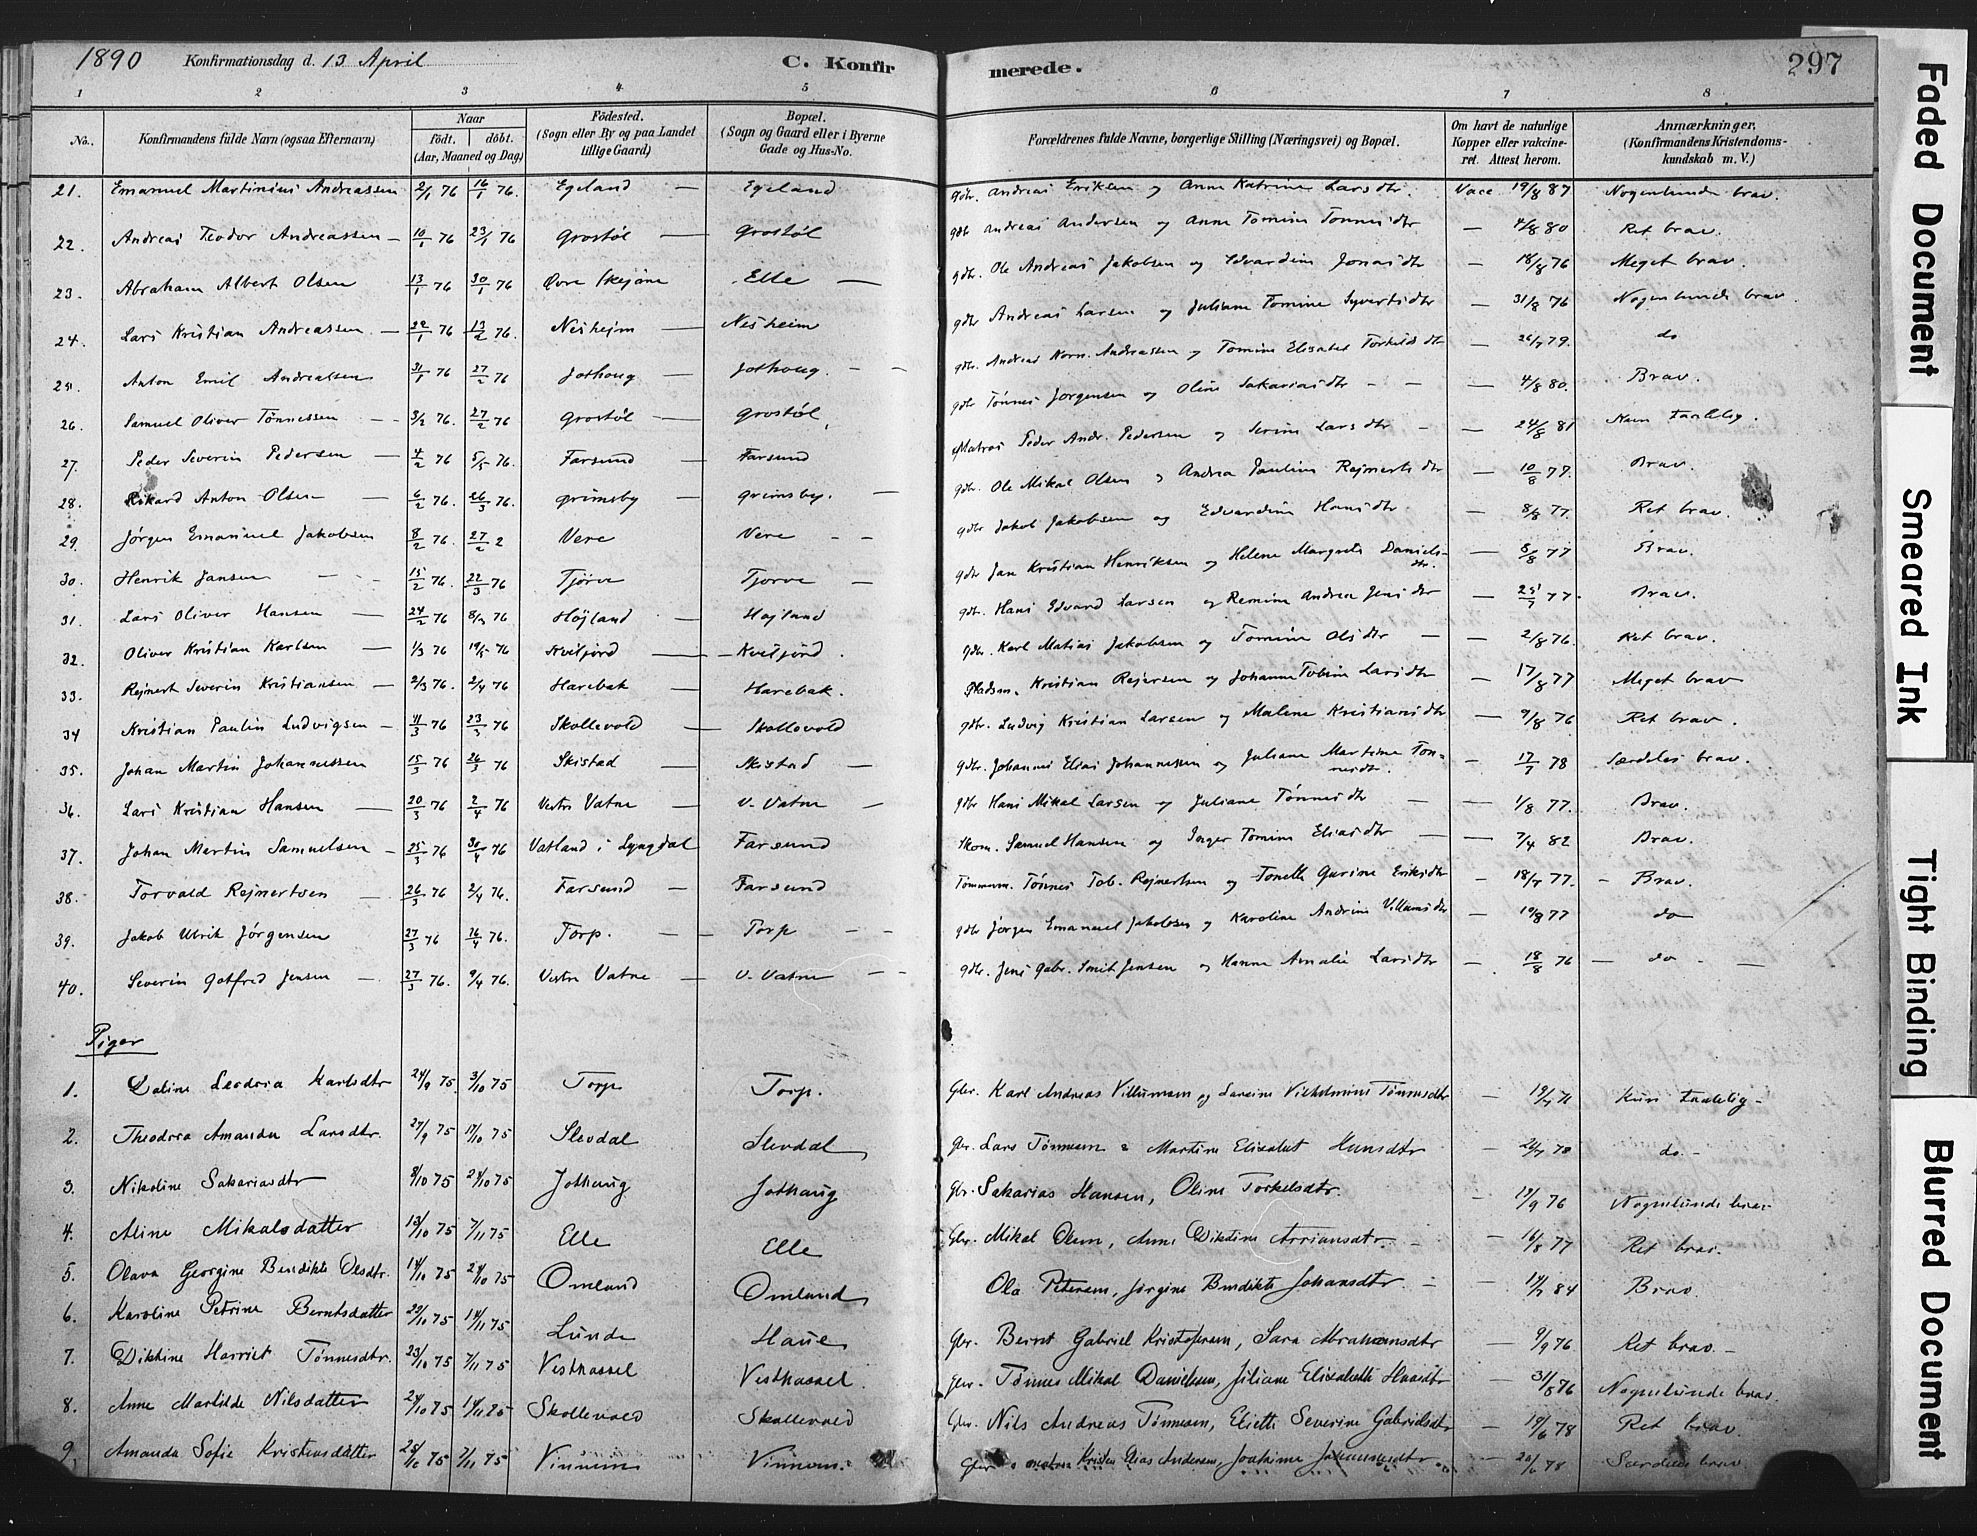 1890 Konfirmationsdag d. 13 April C. Konfirmerede. 297
1 2 3 4 5 6 7 8
No. Konfirmandens fulde Navn (ogsaa Efternavn) Naar født. døbt. (Aar, Maaned og Dag) Fødested. (Sogn eller By og paa Landet tillige Gaard) Bopæl. (Sogn og Gaard eller i Byerne Gade og Hus-No. Forældrenes fulde Navne, borgerlige Stilling (Næringsvei) og Bopæl. Om havt de naturlige Kopper eller vakcineret. Attest herom. Anmærkninger. (Konfirmandens Kristendomskundskab m. V.)
21. Emanuel Martinius Andreassen 2/1 76 16/1 76. Egeland — Egeland gdbr. Andreas Eriksen og Anne Katrine Larsdtr. Vacc 19/8 87 Nogenlunde brav.
22. Andreas Teodor Andreassen — 10/1 76 23/1 76 Grostøl — Grostøl gdb Andreas Andersen og Anne Tomine Tønnesdtr — 4/8 80 Ret brav.
23. Abraham Albert Olsen 13/1 76 30/1 76 Øvre Skejöne Elle — gdbr. Ole Andreas Jakobsen og Edvardine Jonasdtr — 18/8 76 Meget brav.
24. Lars Kristian Andreassen — 22/1 76 13/2 76. Nesheim — Nesheim gdbr Andreas Larsen og Juliane Tomine Syvertsdtr — 31/8 76 Nogenlunde brav.
25. Anton Emil Andreassen 31/1 76 27/2 76 Jothoug — Jothoug. — — gdbr. Andreas Korn. Andreassen og Tomine Elisabet Torkildsdtr — 26/7 79. do
26. Samuel Oliver Tönnessen — — 3/2 76 27/2 76 Grostøl — Grostøl gdbr Tönnes Jørgensen og Oline Sakariasdtr — — — 4/8 80. Brav.
27. Peder Severin Pedersen — 4/2 76 5/5 76. Farsund — Farsund Matros Peder Andr. Pedersen og Serine Larsdtr — — 24/8 81 Kun taalelig.
28. Rikard Anton Olsen — 6/2 76 26/3 76. Grimsby — Grimsby. — gdbr. Ole Mikal Olsen og Andrea Pauline Rejnertsdtr — 10/8 77. Brav.
29. Jørgen Emanuel Jakobsen 8/2 76. 27/2 2 Vere Vere — — gdbr Jakob Jakobsen og Edvardine Hansdtr — 8/8 77. Ret brav.
30. Henrik Jansen — — 15/2 76. 22/3 76 Tjörve Tjorve — gdbr Jan Kristian Henriksen og Helene Margrete Danielsdtr. — 8/8 77 Brav.
31. Lars Oliver Hansen — 24/2 76 8/3 76 Højland Højland gdbr. Hans Edvard Larsen og Remine Andrea Jensdtr — 25/7 77. Brav.
32. Oliver Kristian Karlsen — 1/3 76 14/5 76 Kviljord — Kviljord. gdbr. Karl Matias Jakobsen og Tomine Olsdtr — — 2/8 76. Ret brav.
33. Rejnert Severin Kristiansen — 2/3 76. 2/4 76 Harebak — Harebak. Pladsm. Kristian Rejersen og Johanne Tobine Larsdtr — 17/8 77 Meget brav
34 Kristian Paulin Ludvigsen — 11/3 76 23/3 76 Skollevold Skollevold gdbr. Ludvig Kristian Larsen og Malene Kristiansdtr — 9/8 76 Ret brav.
35. Johan Martin Johannessen 15/3 76 26/3 76 Skistad — Skistad — gdbr. Johannes Elias Johannessen og Juliane Martine Tønnesdtr. — 17/7 78 Særdeles brav.
36. Lars Kristian Hansen — 20/3 76 2/4 76 Vestre Vatne — V. Vatne — gdbr Hans Mikal Larsen og Juliane Tönnesdtr — — 1/8 77. Brav.
37. Johan Martin Samuelsen — 25/3 76 30/4 76 Vatland i Lyngdal Farsund Skom. Samuel Hansen og Inger Tomine Eliasdtr — — 7/4 82 Brav.
38. Torvald Rejnertsen — 26/3 76 2/4 76. Farsund — Farsund Tömmerm. Tönnes Tob. Rejnertsen og Tonette Gurine Eriksdtr — 18/7 77. — Brav.
39. Jakob Ulrik Jörgensen 27/3 76 16/4 76. Torp. — Torp — — gdbr Jørgen Emanuel Jakobsen og Karoline Andrine Villumsdtr — 10/8 77 do
40. Severin Gotfred Jensen — 27/3 76. 9/4 76. Vestre Vatne — V. Vatne — — gdbr. Jens Gabr. Smit Jensen og Hanne Amalie Larsdtr — 18/8 76 — do — —
Piger
1. Daline Leodora Karlsdtr 24/9 75. 3/10 75 Torp Torp. Gbr. Karl Andreas Villumsen og Lavine Vilhelmine Tönnesdtr — Kun taalelig —
2. Theodora Amanda Larsdtr. 27/9 75 17/10 75 Slevdal Slevdal Gbr. Lars Tønnesen & Martine Elisabet Hansdtr — 24/7 78 do. —
3. Nikoline Sakariasdtr 8/10 75 24/10 75 Jothaug Jothaug Gbr. Sakarias Hansen, Oline Torkelsdtr. — 19/9 76 Nogenlunde brav
4. Aline Mikalsdatter 13/10 75 7/11 75 Elle Elle Gbr. Mikal Olsen, Anne Dikdine Arriansdtr. — — 16/8 77 Ret brav.
5. Olava Georgine Bendikte Olsdtr. 14/10 75 24/10 75 Omland Omland Ola Petersen, Jørgine Bendikte Johansdtr — — 14/7 84 Brav.
6. Karoline Petrine Berntsdatter 22/10 75 14/11 75 Lunde Haue Gbr. Bernt Gabriel Kristofersen, Sara Abrahamsdtr — 9/9 76 Ret brav. —
7. Diktine Harriet Tønnesdtr. 23/10 75 7/11 75 Vesthassel Vesthassel Gbr. Tønnes Mikal Danielsen, Juliane Elisabeth Hansdtr — 31/8 76 Nogenlunde brav.
8. Anne Martilde Nilsdatter 24/10 75 14/11 75 Skollevold Skollevold Gbr. Nils Andreas Tønnesen, Eliette Severine Gabrielsdtr — 19/6 78 Ret brav.
9. Amanda Sofie Kristensdatter 25/10 75 7/11 75 Vinnum Vinnum. Gbr & matros Kristen Elias Andersen, Joakime Johannesdtr — 20/6 78 Særdeles brav.
Faded Document
Smeared Ink
Tight Binding
Blurred Document